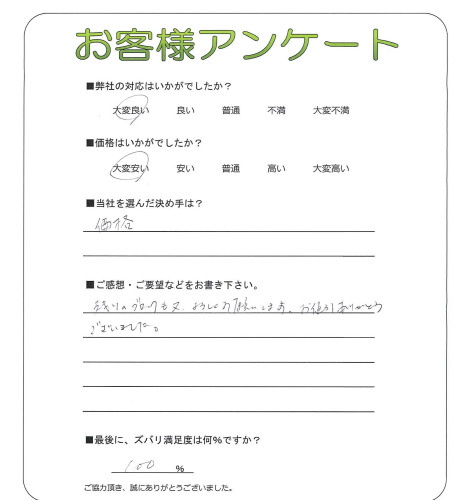 お客様アンケート
■弊社の対応はいかがでしたか？
大変良い 良い 普通 不満 大変不満
■価格はいかがでしたか？
大変安い 安い 普通 高い 大変高い
■当社を選んだ決め手は？
価格
■ご感想・ご要望などをお書き下さい。
残りのブロックも又、よろしくお願いします。お値引ありがとう
ございました。
■最後に、ズバリ満足度は何%ですか？
100 %
ご協力頂き、誠にありがとうございました。